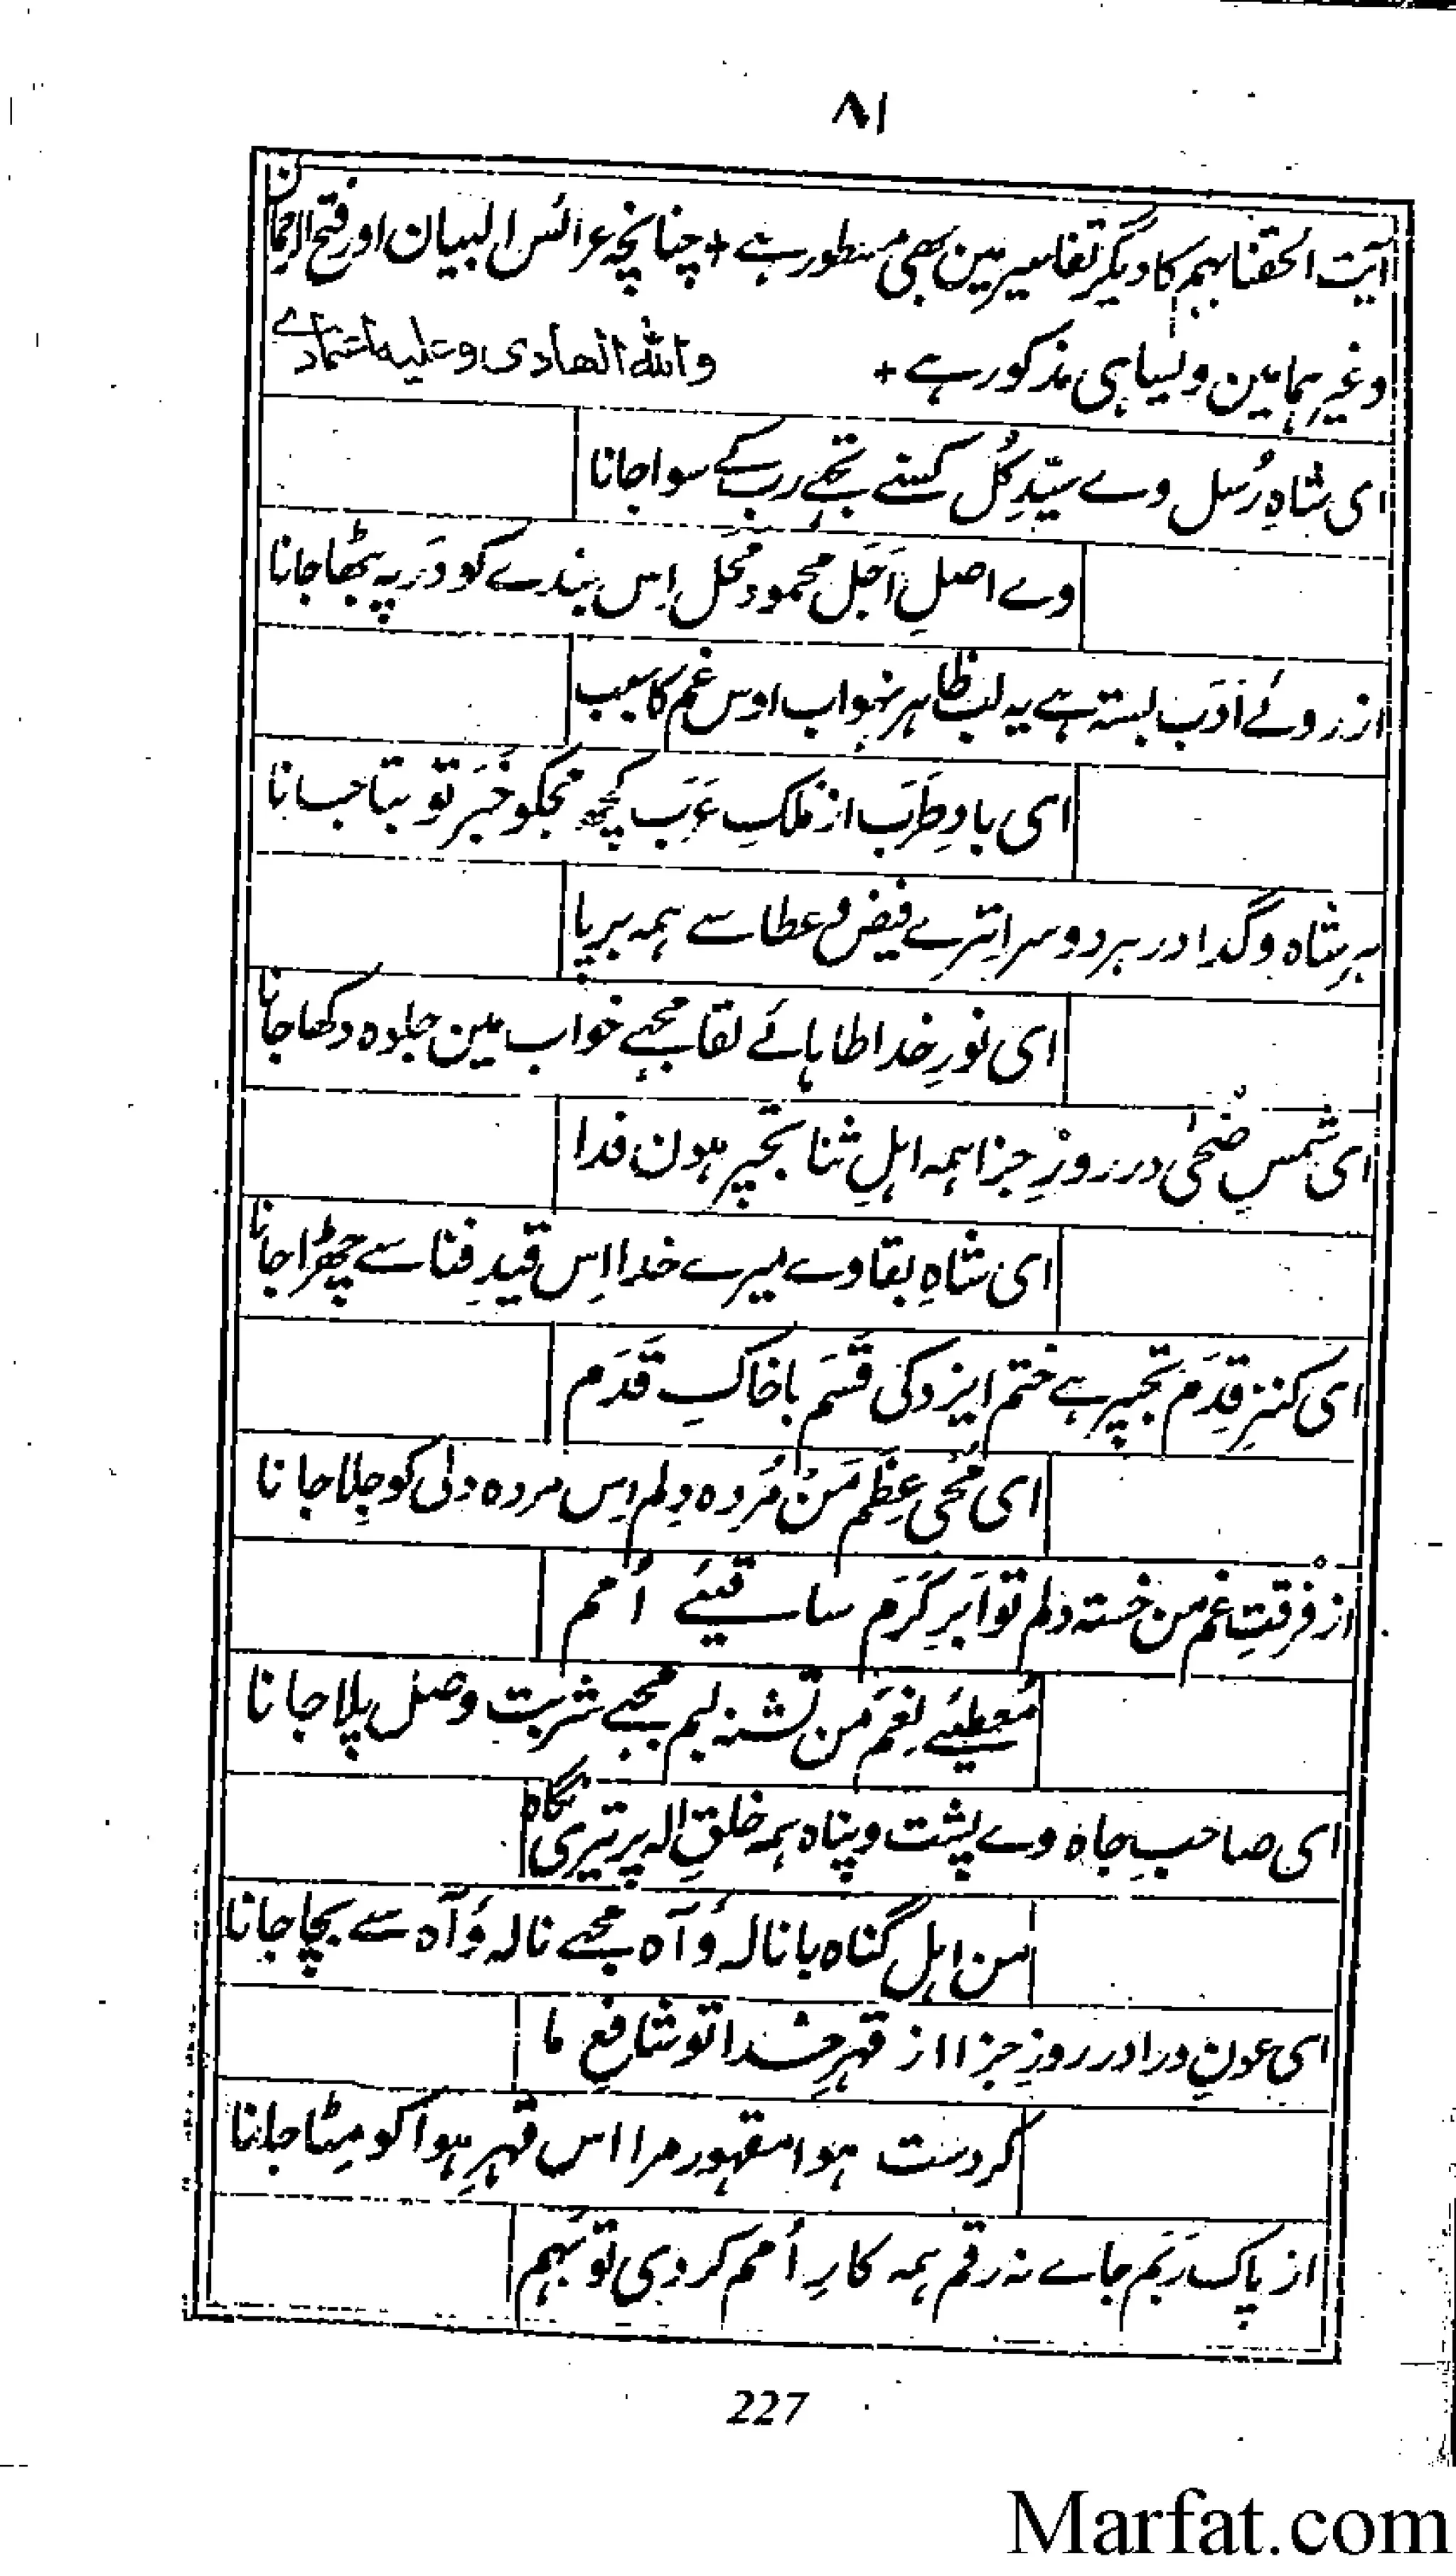 ۸۱
آیت الحقنابہم کا دیگر تفاسیر مین بھی مسطور ہے + چنانچہ عرائس البیان اور فتح الرحمان
وغیرہما مین ویسا ہی مذکور ہے + واللہ الھادی وعلیہ اعتمادے
ای شاہِ رُسل وے سیّدِ کُل کسنے تجھے رب کے سوا جانا
وے اصلِ اَجَل محمود مَحَل اِس بندے کو دَر پہ بٹھا جانا
از روئے اَدَب بستہ ہے یہ لب ظاہر نہو اب اوس غم کا سبب
ای بادِ طَرَب از مُلکِ عَرَب کچھ مجکو خَبَر تو بتا جانا
ہر شاہ و گدا در ہر دوسرا تیرے فیض و عطا سے ہمہ برپا
ای نورِ خدا طاہائے لقا مجھے خواب مین جلوہ دکھا جانا
ای شمسِ ضُحیٰ در روزِ جزا ہمہ اہلِ ثنا تجھپر ہون فدا
ای شاہِ بقا وے میرے خدا اِس قیدِ فنا سے چھڑا جانا
ای کنزِ قِدَم تجھپر ہے ختم ایزد کی قَسَم با خاکِ قَدَم
ای مُحیِ عِظَم مَنْ مُردہ دِلم اِس مردہ دلی کو جِلا جانا
از فُرقتِ غم من خستہ دلم تو اَبرِ کَرَم ساقیئے اُمم
مُعطیئے نِعَم مَن تشنہ لبم مجھے شربت وصل پلا جانا
ای صاحبِ جاہ وے پشت و پناہ ہمہ خلقِ الہ پر تیری نگاہ
من اہلِ گناہ با نالہ وَ آہ مجھے نالہ وَ آہ سے بچا جانا
ای عونِ ورا در روزِ جزا از قہرِ خدا تو شافعِ ما
کردست ہوا مقہور مرا اس قہرِ ہوا کو مِٹا جانا
از پاک رَبَم جاے نہ رقم ہمہ کارِ اُمم کردی تو بَہم
227
Marfat.com